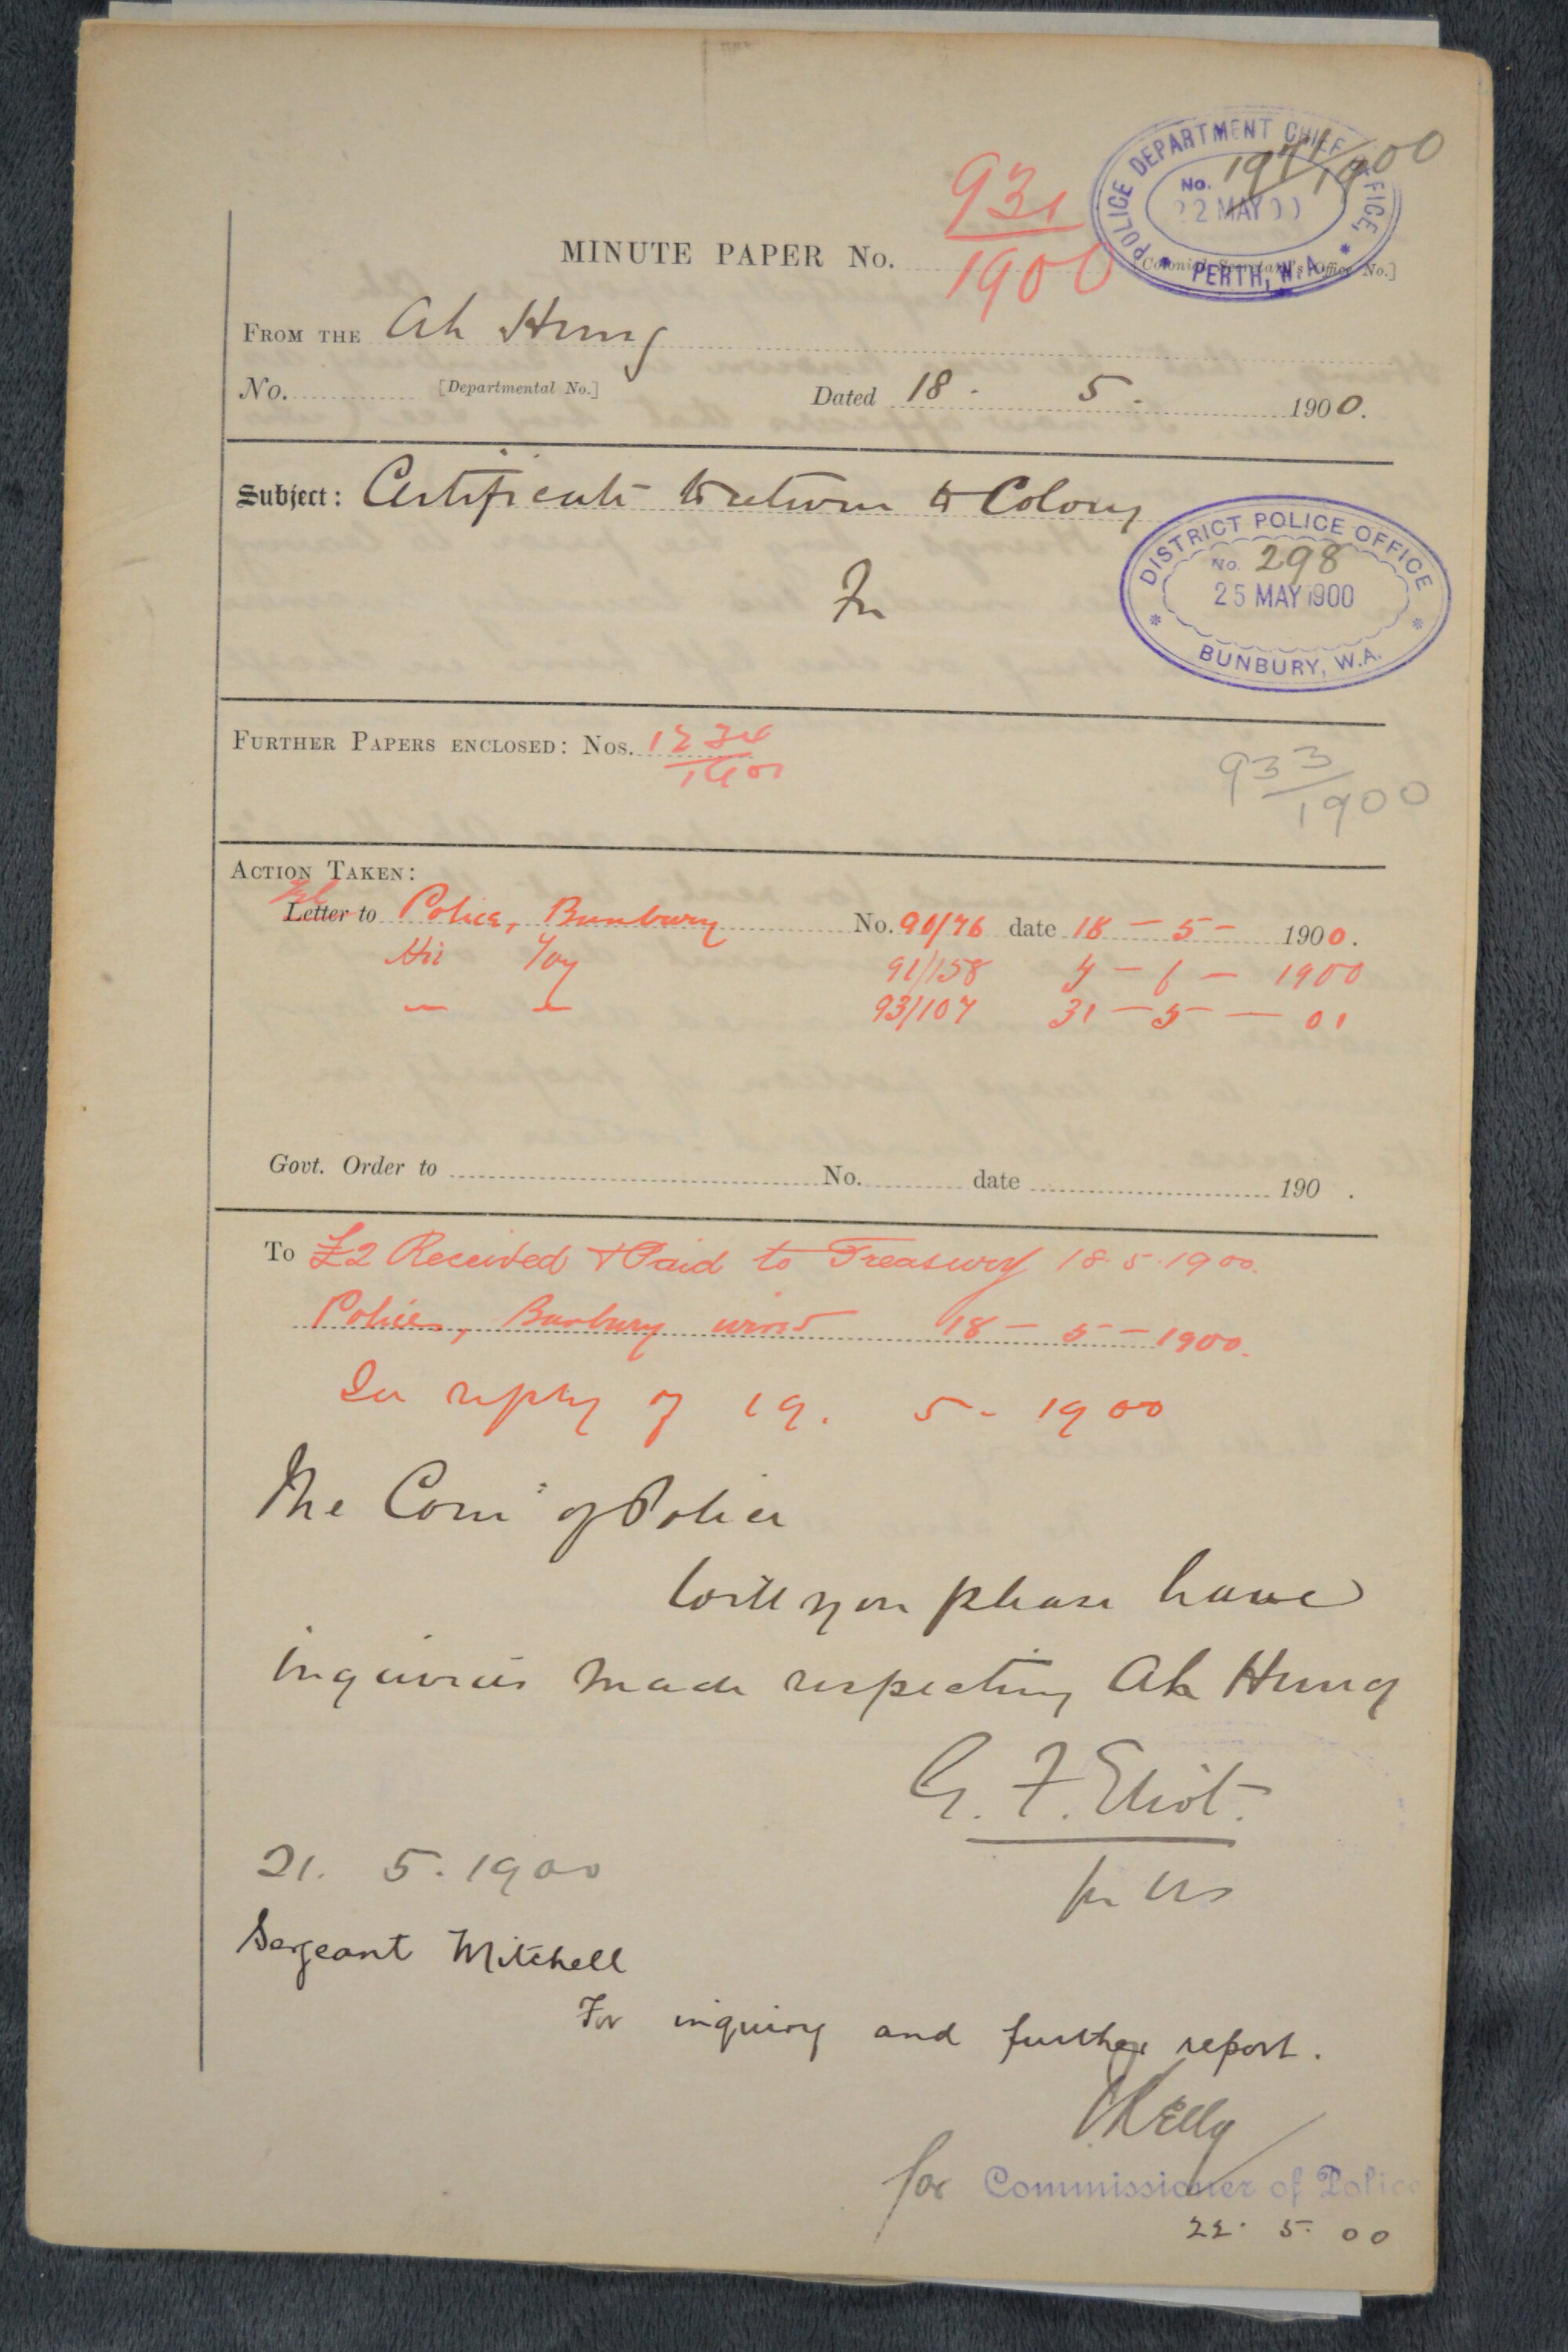 POLICE DEPARTMENT CHIEF OFFICE,
No. 1971/1900
22 MAY 00
PERTH, W.A.
931
1900
MINUTE PAPER No.
[Colonial Secretary's Office No.]
FROM THE Ah Hung
No. [Departmental No.] Dated 18 - 5 - 1900.
Subject: Certificate to return to Colony
DISTRICT POLICE OFFICE
No. 298
25 MAY 1900
BUNBURY, W.A.
FURTHER PAPERS ENCLOSED: Nos. 1234
1901
933
1900
ACTION TAKEN:
Letter to Police, Bunbury No. 90/76 date 18 - 5 - 1900.
91/158 1900
93/107 31 - 5 - 01
Govt. Order to No. date 190 .
To £2 Received & Paid to Treasury 18.5.1900.
Police, Bunbury wired 18 - 5 - 1900.
reply of 19. 5 - 1900
The Comr of Police
Will you please have
inquiries made respecting Ah Hung
G. F. Eliot.
for US
21. 5. 1900
Sergeant Mitchell
For inquiry and further report.
Kelly
for Commissioner of Police
22. 5. 00